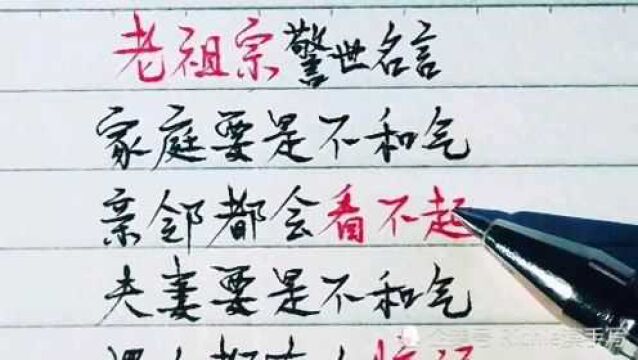 老祖宗警世名言
家庭要是不和气
亲邻都会看不起
夫妻要是不和气